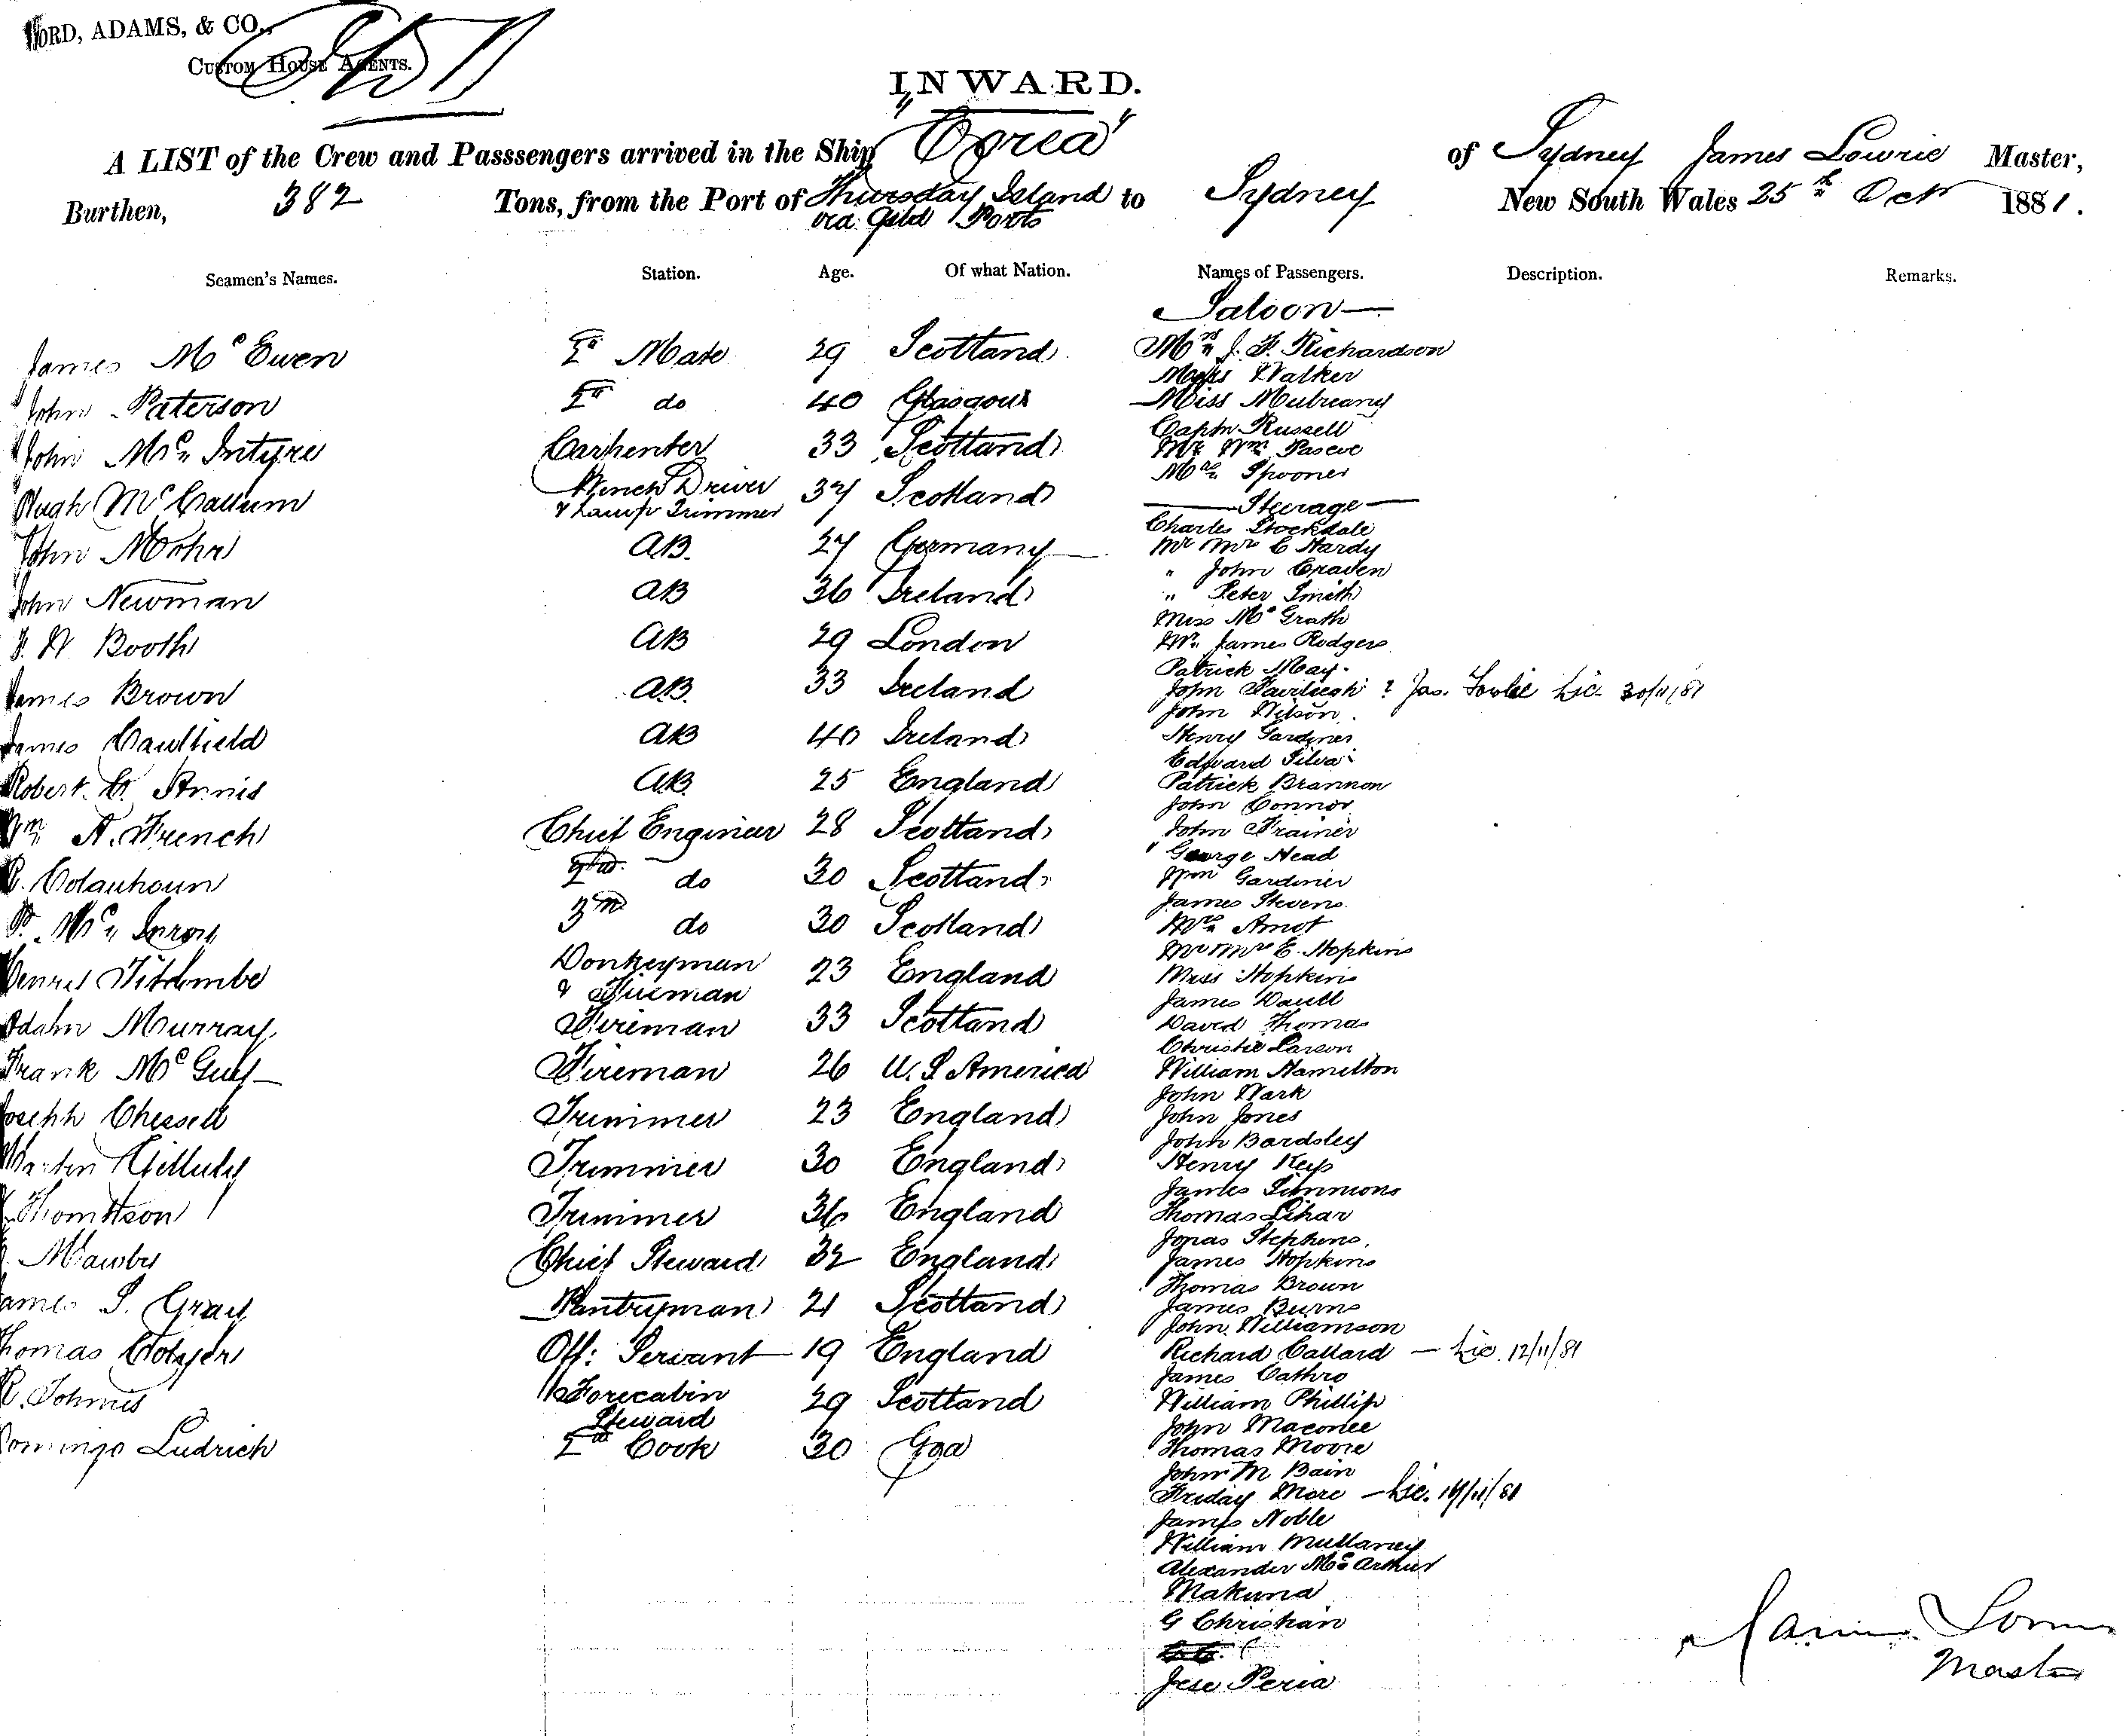 FORD, ADAMS, & CO.,
CUSTOM HOUSE AGENTS.
INWARD.
A LIST of the Crew and Passsengers arrived in the Ship "Corea" of Sydney James Lowrie Master,
Burthen, 382 Tons, from the Port of Thursday Island via Qld Ports to Sydney New South Wales 25th Oct 1881.
Seamen's Names. Station. Age. Of what Nation. Names of Passengers. Description. Remarks.
James McEwen Mate 29 Scotland
John Paterson do 40 Glasgow
John McIntyre Carpenter 33 Scotland
Hugh McCallum Winch Driver & Lamp Trimmer 37 Scotland
John Mohr AB. 27 Germany
John Newman AB 36 Ireland
Booth AB 29 London
James Brown AB. 33 Ireland
James Caulfield AB 40 Ireland
Robert Annis AB. 25 England
Wm A. French Chief Engineer 28 Scotland
Colquhoun 2nd do 30 Scotland
Mc 3rd do 30 Scotland
Titcombe Donkeyman & Fireman 23 England
Adam Murray Fireman 33 Scotland
Frank Fireman 26 U.S America
Joseph Chessell Trimmer 23 England
Martin Gilluly Trimmer 30 England
Thompson Trimmer 36 England
Mawby Chief Steward 32 England
James S. Gray Pantryman 21 Scotland
Thomas Off: Servant 19 England
R. Forecabin Steward 29 Scotland
Domingo Ludrich Cook 30 Goa
Saloon
Mrs J. F. Richardson
Walker
Miss
Captn Russell
Mr Wm Pascoe
Spooner
Steerage
Charles Stockdale
Mr Mrs C Hardy
" John Craven
" Peter Smith
Miss McGrath
Mr James Rodgers
Patrick May.
John ? Jas. Lic. 30/11/81
John Wilson.
Henry Gardiner
Edward Silva
Patrick Brannon
John Connor
John Frainer
George Head
Wm Gardiner
James Stevens
Mrs Amot
Mr Mrs E. Hopkins
Miss Hopkins
James
David Thomas
Christie Larson
William Hamilton
John Wark
John Jones
John Bardsley
Henry Keys
James Simmons
Thomas Lihar
Jonas Stephens.
James Hopkins
Thomas Brown
James Burns
John Williamson
Richard Callard — Lic. 12/11/81
James Cathro
William Phillip
John Maconee
Thomas Moore
John M Bain
Friday More — Lic. /11/81
James Noble
William Mullaney
Alexander McArthur
Makuna
G Christian
Jese Peria
Master